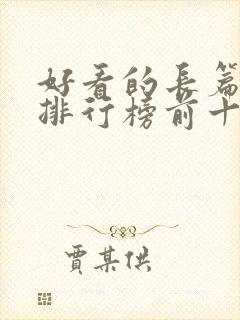 好看的長篇
排行榜前十
賈某供